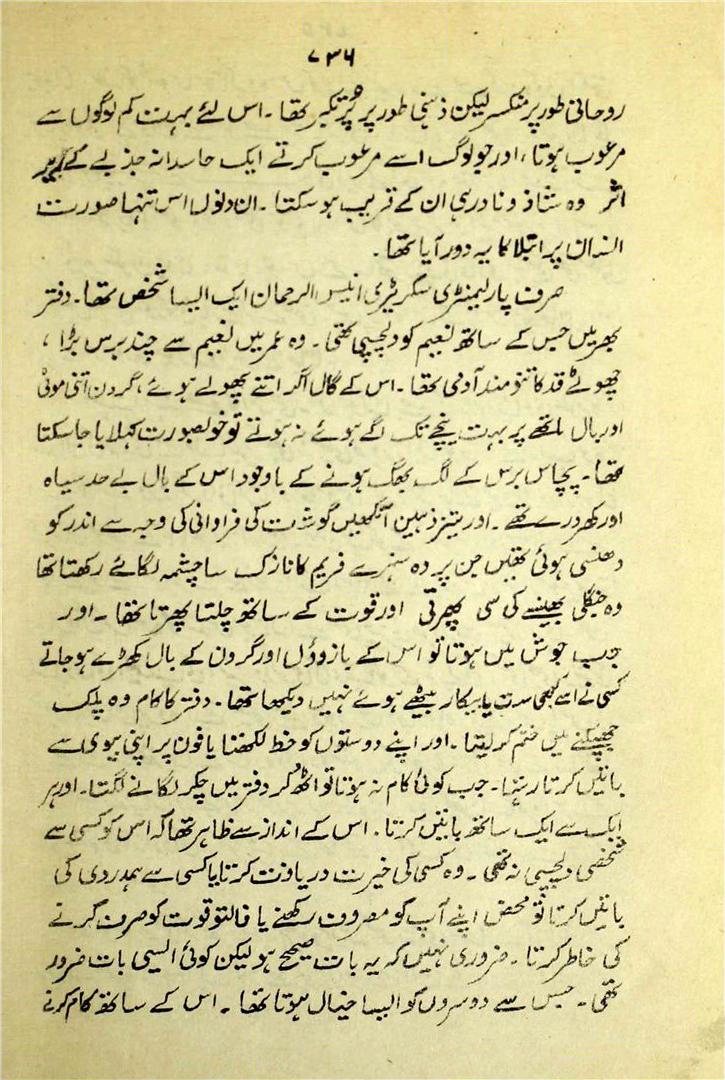 ۷۳۶
روحانی طور پر منکسر لیکن ذہنی طور پر پُرتکبر تھا ۔ اس لئے بہت کم لوگوں سے
مرعوب ہوتا ، اور جو لوگ اسے مرعوب کرتے ایک حاسدانہ جذبے کے زیر
اثر وہ شاذ و نادر ہی ان کے قریب ہو سکتا ۔ ان دنوں اس تنہا صورت
انسان پر ابتلا کا یہ دور آیا تھا ۔
صرف پارلیمنٹری سکریٹری انیس الرحمان ایک ایسا شخص تھا ۔ دفتر
بھر میں جس کے ساتھ نعیم کو دلچسپی تھی ۔ وہ عمر میں نعیم سے چند برس بڑا ،
چھوٹے قد کا تنومند آدمی تھا ۔ اس کے گال اگر اتنے پھولے ہوئے ، گردن اتنی موٹی
اور بال ماتھے پر بہت نیچے تک اگے ہوئے نہ ہوتے تو خوبصورت کہلایا جا سکتا
تھا ۔ پچاس برس کے لگ بھگ ہونے کے باوجود اس کے بال بے حد سیاہ
اور کھردرے تھے ۔ اور تیز ذہین آنکھیں گوشت کی فراوانی کی وجہ سے اندر کو
دھنسی ہوئی تھیں جن پر وہ سنہرے فریم کا نازک سا چشمہ لگائے رکھتا تھا
وہ جنگلی بھینسے کی سی پھرتی اور قوت کے ساتھ چلتا پھرتا تھا ۔ اور
جب جوش میں ہوتا تو اس کے بازوؤں اور گردن کے بال کھڑے ہو جاتے
کسی نے اسے کبھی سست یا بیکار بیٹھے ہوئے نہیں دیکھا تھا ۔ دفتر کا کام وہ پلک
جھپکنے میں ختم کر لیتا ۔ اور اپنے دوستوں کو خط لکھتا یا فون پر اپنی بیوی سے
باتیں کرتا رہتا ۔ جب کوئی کام نہ ہوتا تو اٹھ کر دفتر میں چکر لگانے لگتا ۔ اور ہر
ایک سے ایک ساتھ باتیں کرتا ۔ اس کے انداز سے ظاہر تھا کہ اس کو کسی سے
شخصی دلچسپی نہ تھی ۔ وہ کسی کی خیریت دریافت کرتا یا کسی سے ہمدردی کی
باتیں کرتا تو محض اپنے آپ کو مصروف رکھنے یا فالتو قوت کو صرف کرنے
کی خاطر کرتا ۔ ضروری نہیں کہ یہ بات صحیح ہو لیکن کوئی ایسی بات ضرور
تھی ۔ جس سے دوسروں کو ایسا خیال ہوتا تھا ۔ اس کے ساتھ کام کرنے